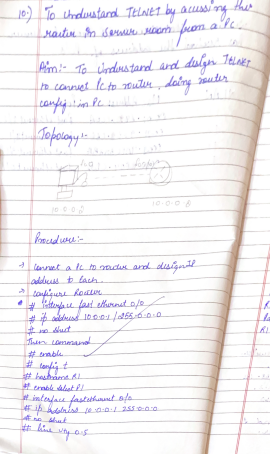 10.) To Understand TELNET by acussing the
router in server room from a PC.
Aim:- To Understand and design TELNET
to connect PC to router, doing router
config in PC
Topology:-
10.0.0.
10.0.0.
Procedure:-
→ connect a PC to router and design IP
address to each.
→ configure Router
# interface fast ethernet 0/0
# ip address 10.0.0.1 255.0.0.0
# no shut
Then command
# enable
# config t
# hostname R1
# enable P1
# interface fastethernet 0/0
# ip address 10.0.0.1 255.0.0.0
# no shut
## line vty 0.5
R1